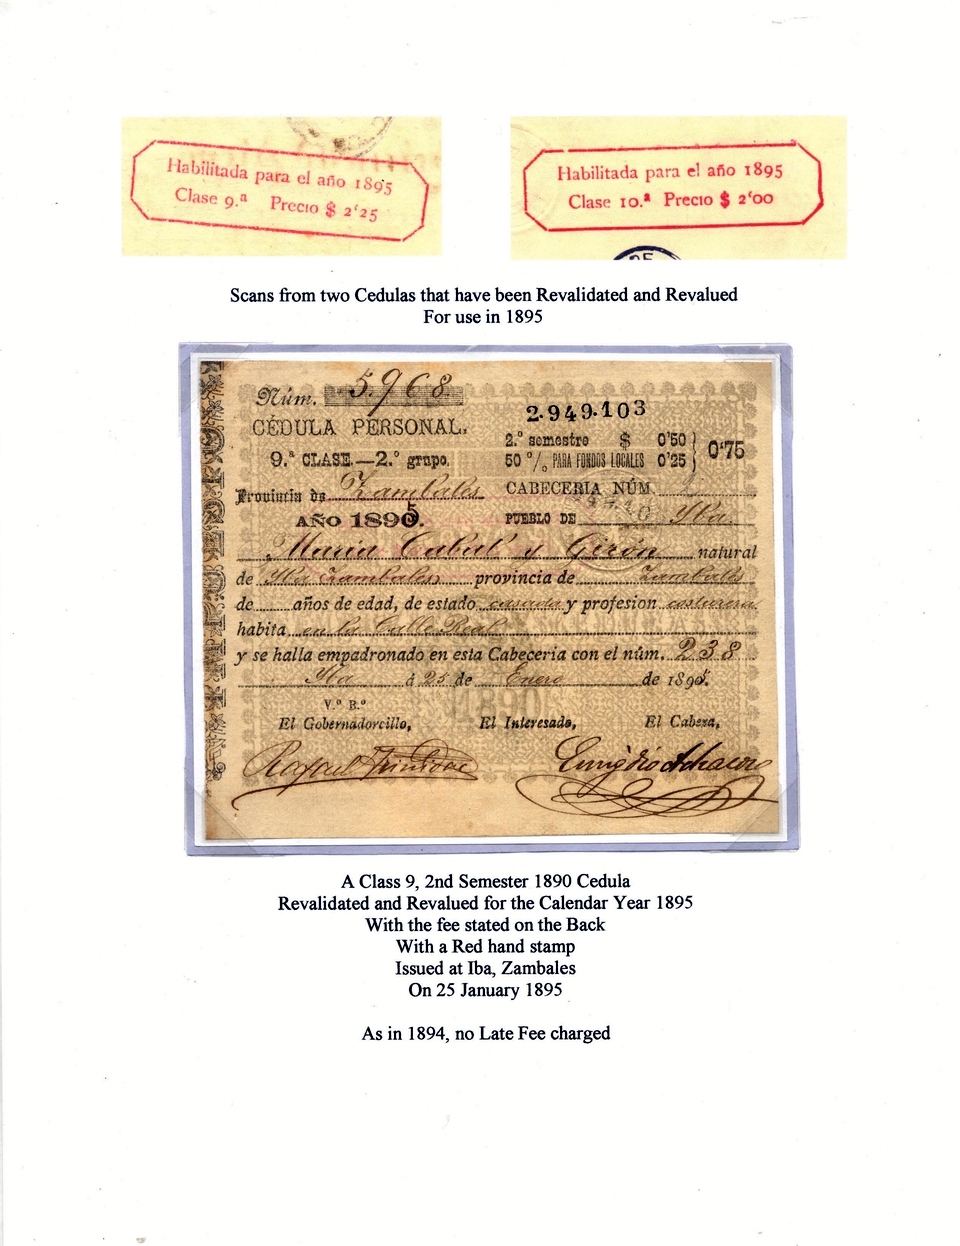 Habilitada para el año 1895
Clase 9.ª Precio $ 2'25
Habilitada para el año 1895
Clase 10.ª Precio $ 2'00
DE
Scans from two Cedulas that have been Revalidated and Revalued
For use in 1895
Núm. 5.968
CÉDULA PERSONAL.
9.ª CLASE.—2.º grupo.
2.949.103
2.º semestre $ 0'50
50 % PARA FONDOS LOCALES 0'25
0'75
Provincia de Zambales
CABECERIA NÚM.
AÑO 1895
PUEBLO DE Yba.
Maria Cabal y Girón natural
de Yba Zambales provincia de Zambales
de años de edad, de estado casada y profesion costurera
habita en la Calle Real
y se halla empadronado en esta Cabeceria con el núm. 238
Yba á 25 de Enero de 1895.
V.º B.º
El Gobernadorcillo, El Interesado, El Cabeza,
Rafael Trinidad
A Class 9, 2nd Semester 1890 Cedula
Revalidated and Revalued for the Calendar Year 1895
With the fee stated on the Back
With a Red hand stamp
Issued at Iba, Zambales
On 25 January 1895
As in 1894, no Late Fee charged